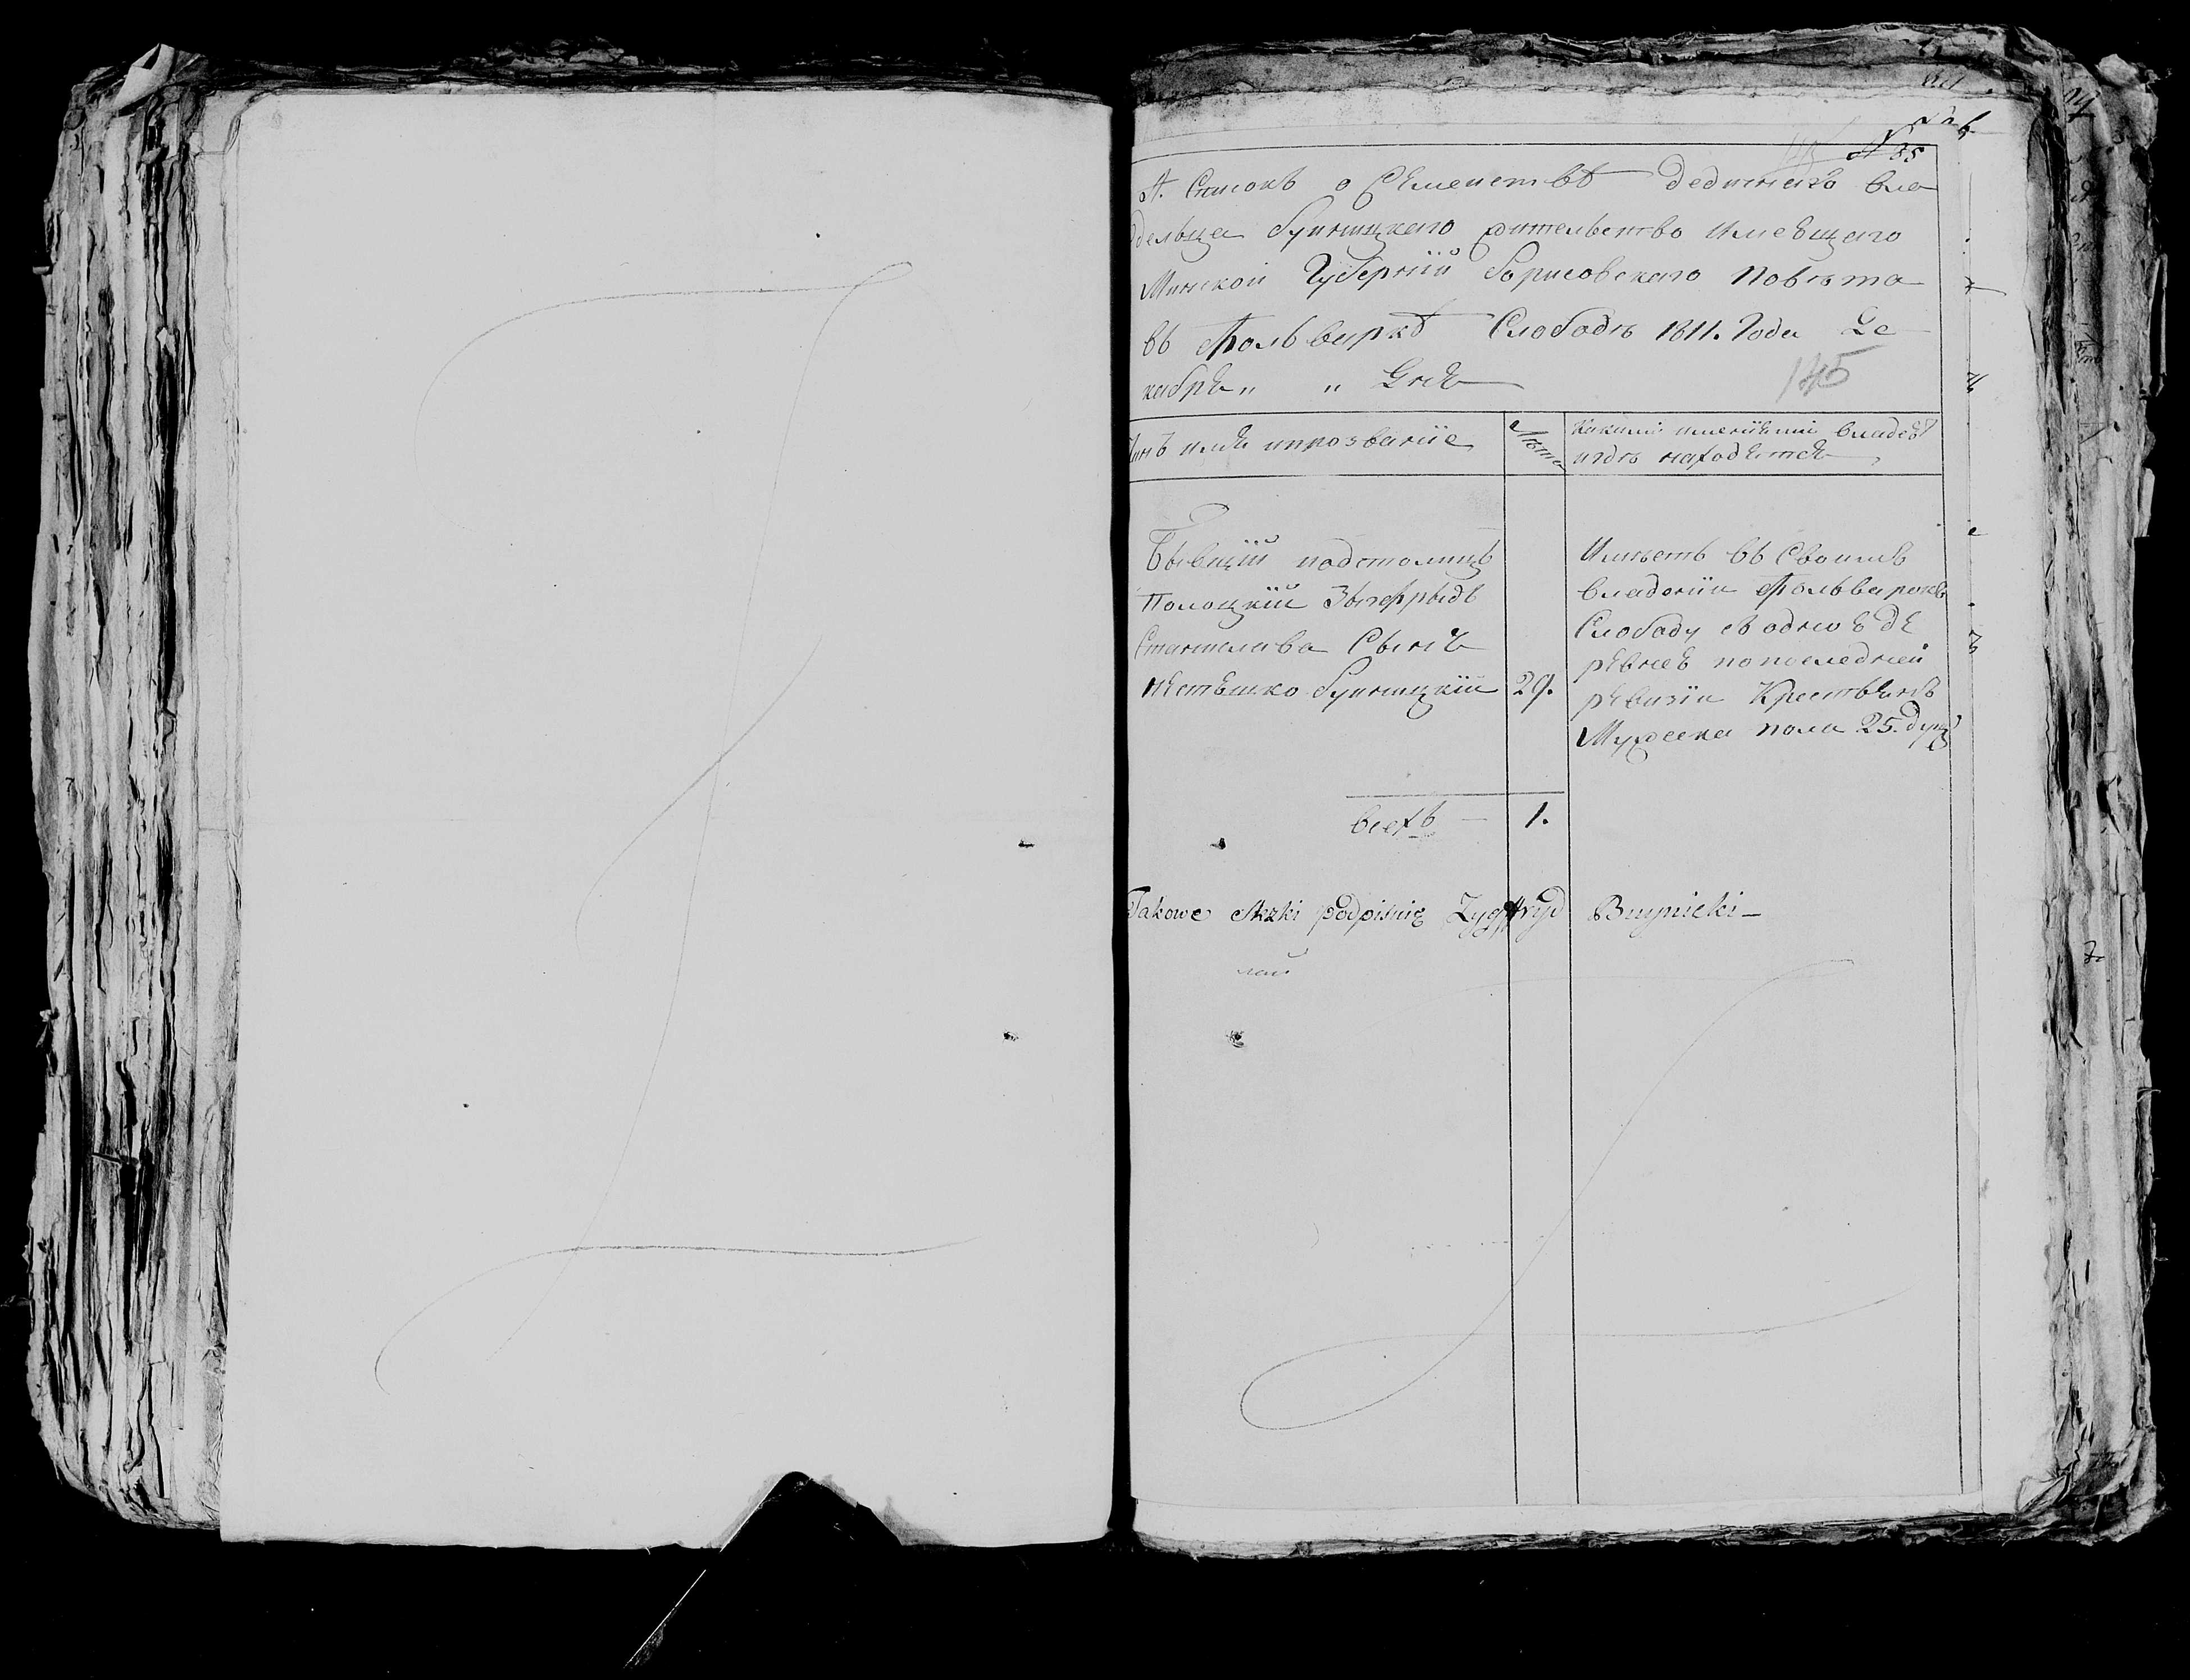 № 35
А. Списокъ о Семействѣ дедичнаго вла
дельца Буйницкаго жительство имеющаго
Минской Губернїи Борисовскаго Повѣта
въ Фольваркѣ Слободѣ 1811. Года Де
кабря „ „ Дня
145
Чинъ имя ипрозванїе
Лѣта
Какими имениями владеетъ
игдѣ находятся
Бывшїй подстолицъ
Полоцкїй Зыгфрыдъ
Станислава Сынъ
Буйницкїй 29.
Имѣетъ въ Своимъ
владенїи Фольварокъ
Слободу съ одною де
ревнею попоследней
ревизїи Крестьянъ
Мужеска пола 25. душъ
всехъ — 1.
Takowe Skazki podpisuię Zygffryd Buynicki